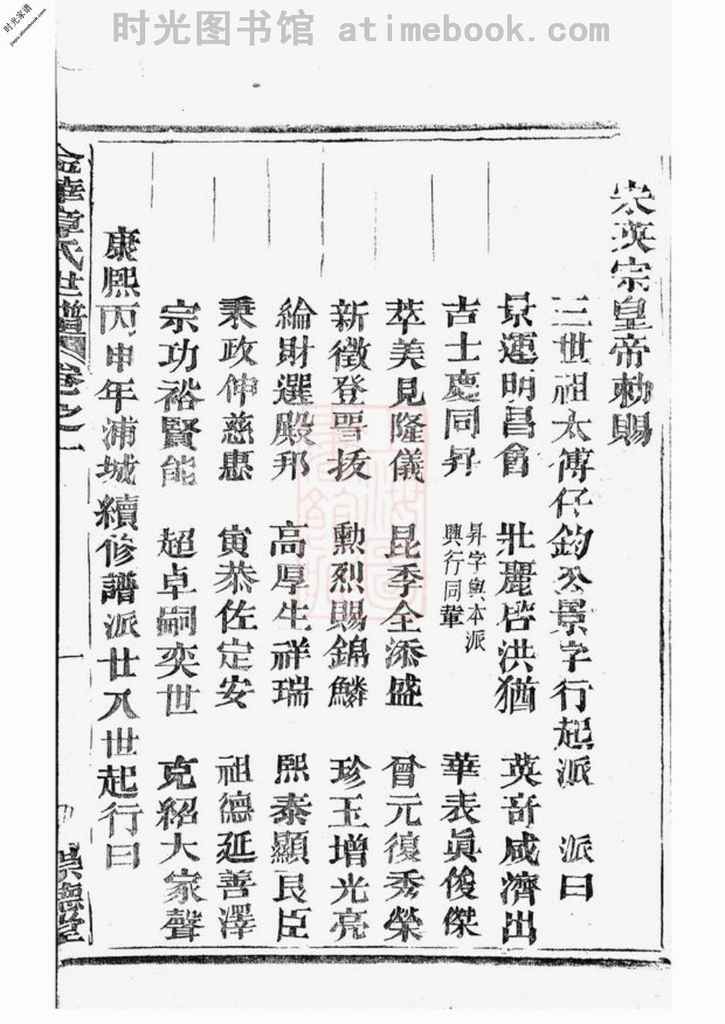 时光图书馆 atimebook.com
时光家谱
宋英宗皇帝勅賜
三世祖太傅仔鈞公景字行起派 派曰
景運明昌會 壯麗啓洪猶 英奇咸濟出
吉士慶同昇 昇字與本派興行同輩 華表眞俊傑
萃美見隆儀 昆季全添盛 曾元復秀榮
新徵登晋拔 勳烈賜錦鱗 珍玉增光亮
綸財選殿邦 高厚生祥瑞 熙泰顯良臣
秉政伸慈惠 寅恭佐定安 祖德延善澤
宗功裕賢能 超卓嗣奕世 克紹大家聲
康熙丙申年浦城續修譜派廿八世起行曰
金華章氏世譜 卷之一 一 崇德堂